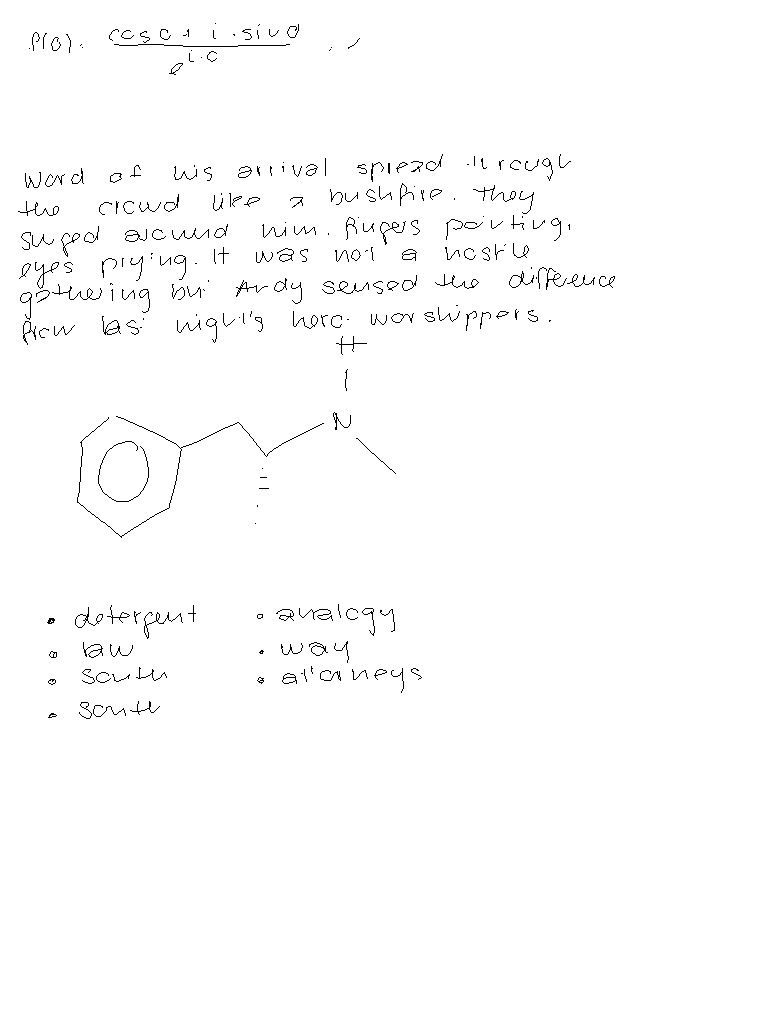 f(θ) = (cos θ + i · sin θ) / e^(i·θ)
Word of his arrival spread through
the crowd like a bushfire. They
surged around him. Fingers pointing,
eyes prying. It was not a hostile
gathering but Andy sensed the difference
from last night's hero worshippers.
H
N
• detergent • analogy
• law • way
• South • attorneys
• South